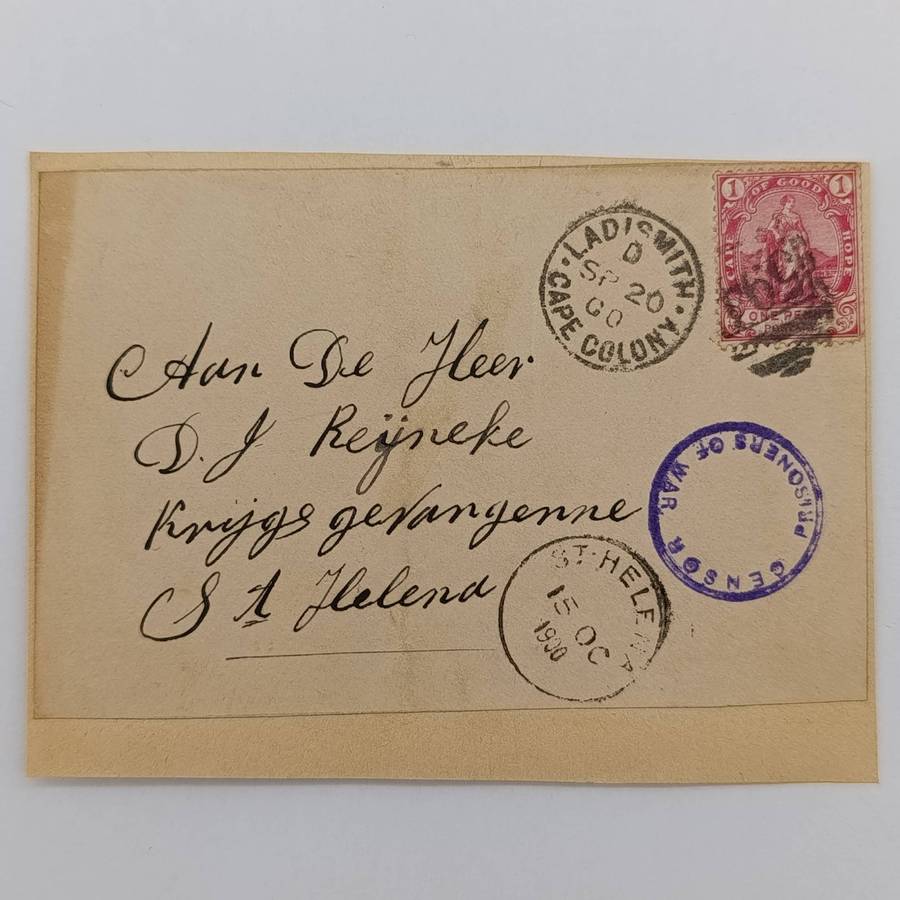 1 OF GOOD 1
HOPE
ONE PENNY
LADISMITH
D
SP 20
00
CAPE COLONY
Aan De Heer
D. J Reijneke
Krijgs gevangenne
St Helena
CENSOR PRISONERS OF WAR
ST. HELENA
15 OC
1900